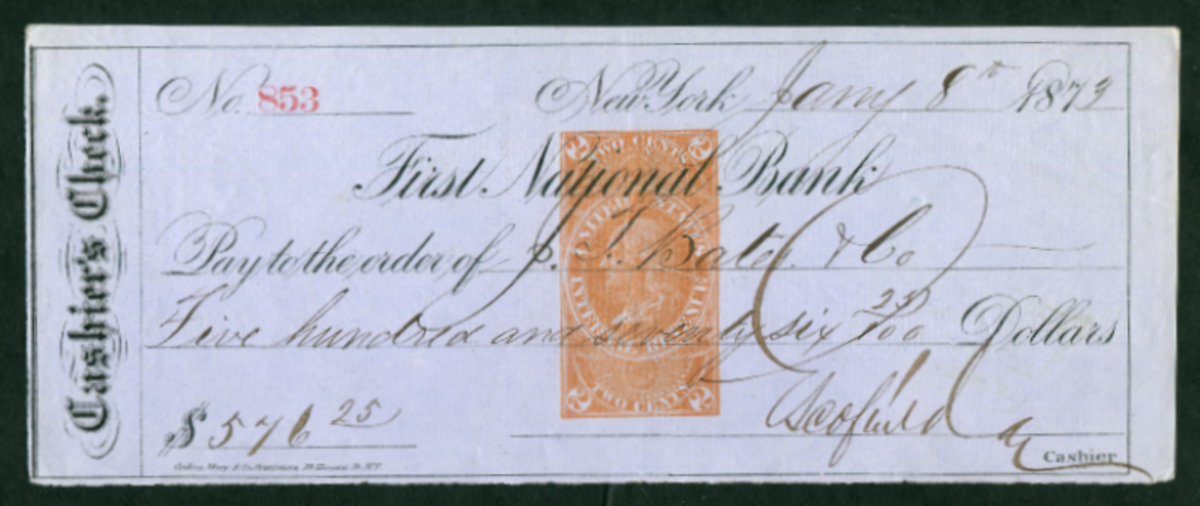 Cashier's Check.
No. 853 New York Jany 8th 1873
First National Bank
Pay to the order of J. T. Bates & Co
Five hundred and seventy six 25/100 Dollars
$ 576 25
Scofield
Cashier
TWO CENTS
2 2
UNITED STATES
INTERNAL REVENUE
TWO CENTS
2 2